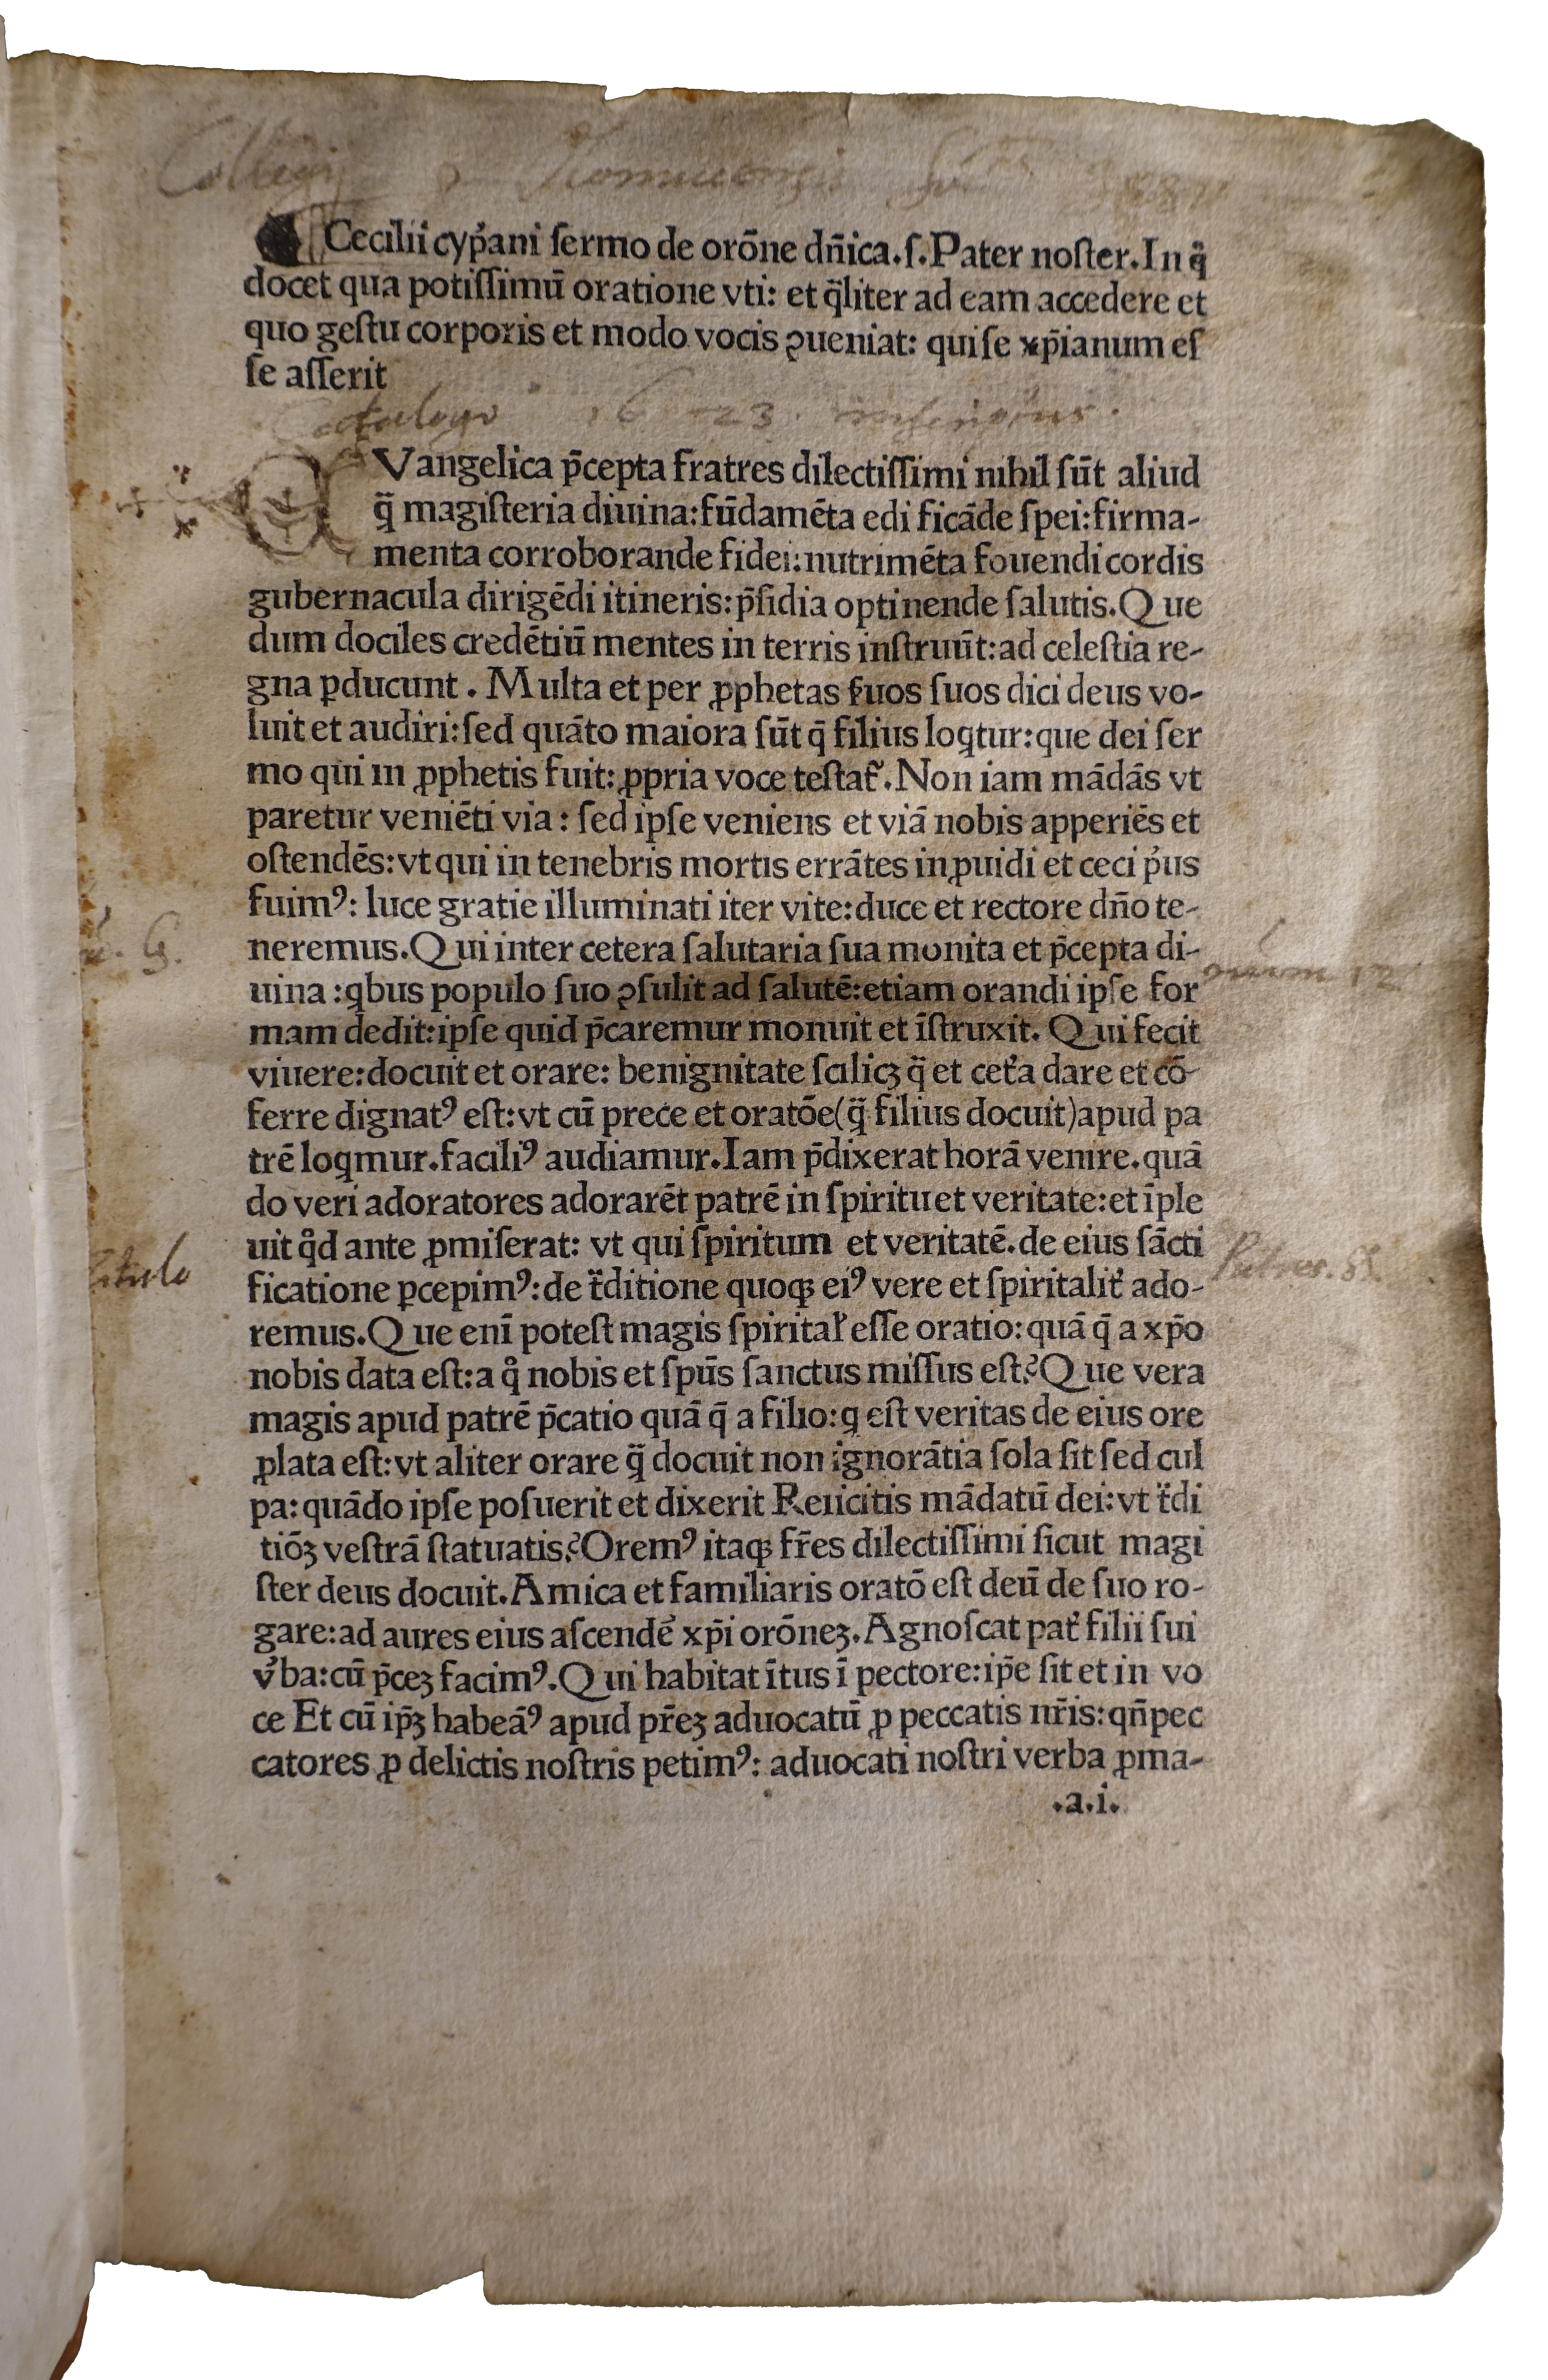 Collegij
Cecilii cyp̓ani ſermo de orōne dn̄ica.ſ.Pater noſter.In q̄
docet qua potiſſimū oratione vti: et q̄liter ad eam accedere et
quo geſtu corporis et modo vocis ꝯueniat: qui ſe xp̄ianum eſ
ſe aſſerit
16 23
Vangelica p̄cepta fratres dilectiſſimi nihil ſūt aliud
q̄ magiſteria diuina:fūdamēta edi ficāde ſpei:firma-
menta corroborande fidei:nutrimēta fouendi cordis
gubernacula dirigēdi itineris:p̄ſidia optinende ſalutis.Que
dum dociles credētiū mentes in terris inſtruūt:ad celeſtia re-
gna ꝑducunt. Multa et per ꝓphetas ſuos ſuos dici deus vo-
luit et audiri:ſed quāto maiora ſūt q̄ filius loꝗtur:que dei ſer
mo qui in ꝓphetis fuit:ꝓpria voce teſtat᷑.Non iam mādās vt
paretur veniēti via: ſed ipſe veniens et viā nobis apperiēs et
oſtendēs:vt qui in tenebris mortis errātes inꝓuidi et ceci p̓us
fuimꝰ: luce gratie illuminati iter vite:duce et rectore dn̄o te-
neremus.Qui inter cetera ſalutaria ſua monita et p̄cepta di-
uina:ꝗbus populo ſuo ꝯſulit ad ſalutē:etiam orandi ipſe for
mam dedit:ipſe quid p̄caremur monuit et īſtruxit. Qui fecit
viuere:docuit et orare: benignitate ſcilicꝫ q̄ et cet̓a dare et cō-
ferre dignatꝰ eſt:vt cū prece et oratōe(q̄ filius docuit)apud pa
trē loꝗmur.faciliꝰ audiamur.Iam p̄dixerat horā venire.quā
do veri adoratores adorarēt patrē in ſpiritu et veritate:et īple
uit qͦd ante ꝓmiſerat: vt qui ſpiritum et veritatē.de eius ſācti
ficatione ꝑcepimꝰ:de tᷓditione quoqꝫ eiꝰ vere et ſpiritalit̓ ado-
remus.Que enī poteſt magis ſpiritał eſſe oratio:quā q̄ a xp̄o
nobis data eſt:a qͦ nobis et ſpūs ſanctus miſſus eſt?Que vera
magis apud patrē p̄catio quā q̄ a filio:ꝗ eſt veritas de eius ore
ꝓlata eſt:vt aliter orare q̄ docuit non ignorātia ſola ſit ſed cul
pa:quādo ipſe poſuerit et dixerit Reiicitis mādatū dei:vt tᷓdi
tiōꝫ veſtrā ſtatuatis?Oremꝰ itaqꝫ fr̄es dilectiſſimi ſicut magi
ſter deus docuit.Amica et familiaris oratō eſt deū de ſuo ro-
gare:ad aures eius aſcende᷑ xp̄i orōneꝫ.Agnoſcat pat̓ filii ſui
v̓ba:cū p̄ceꝫ facimꝰ.Qui habitat ītus ī pectore:ip̄e ſit et in vo
ce Et cū ip̄ꝫ habeāꝰ apud pr̄eꝫ aduocatū ꝓ peccatis nr̄is:qn̄ pec
catores ꝓ delictis noſtris petimꝰ: aduocati noſtri verba ꝓma-
.a.i.